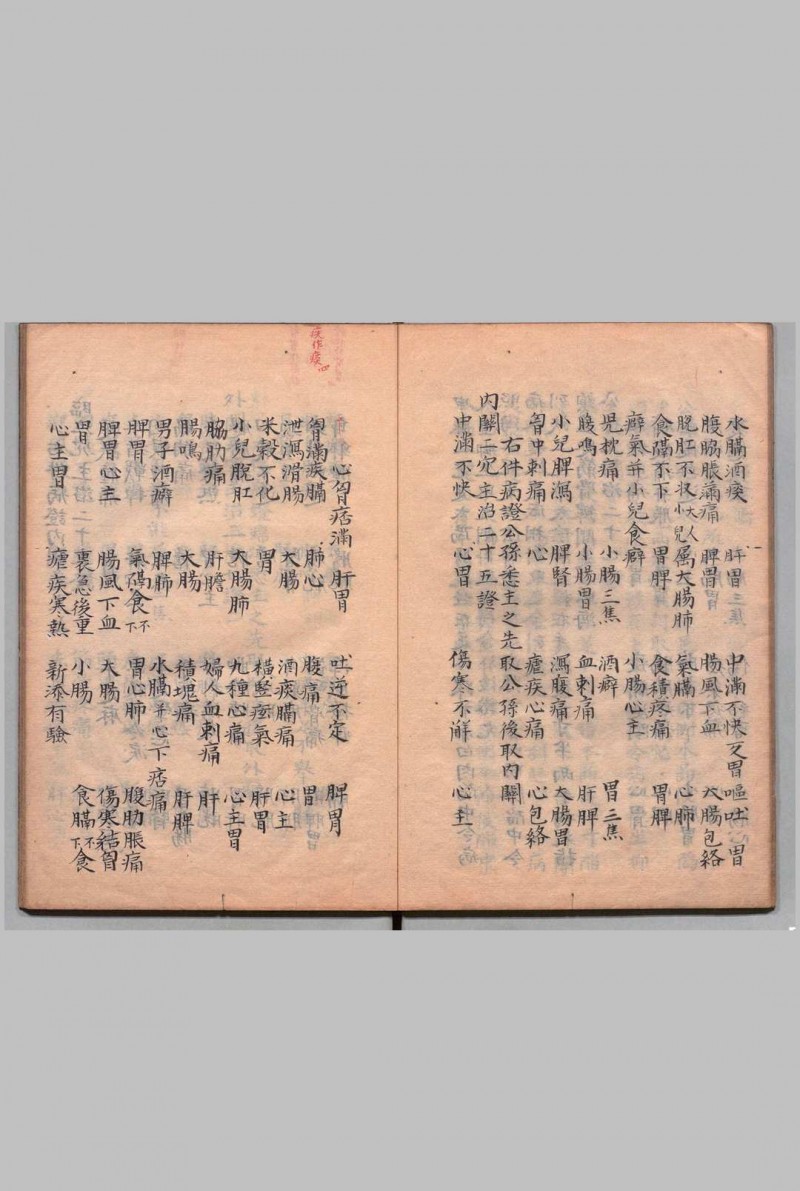 水膈酒痰 肝胃 中滿不快反胃嘔吐 胃
腹脇脹滿痛 脾胃 腸風下血 大腸包絡
脫肛不收大人小兒 属大腸肺 氣膈 心肺
食膈不下 胃脾 食積疼痛 胃脾
癖氣并小兒食癖 小腸心主
兒枕痛 小腸三焦 酒癖 胃三焦
腹鳴 小腸胃 血刺痛 肝脾
小兒脾瀉 脾腎 瀉腹痛 大腸胃
胷中刺痛 心 瘧疾心痛 心包絡
右件病證公孫悉主之先取公孫後取內關
內關二穴主治二十五證
中滿不快 心胃 傷寒不解 心主
心胷痞滿 肝胃 吐逆不定 脾胃
胷滿疾膈 肺心 腹痛 胃
泄瀉滑腸 大腸 酒痰膈痛 心主
米穀不化 胃 橫竪痃氣 肝胃
小兒脫肛 大腸肺 九種心痛 心主胃
脇肋痛 肝膽 婦人血刺痛 肝
腸鳴 大腸 積塊痛 肝脾
男子酒癖 脾肺 水膈并心下痞痛
脾胃 氣膈食不下 胃心肺 腹肋脹痛
脾胃心主 腸風下血 大腸 傷寒結胷
胃 裏急後重 小腸 食膈不下食
心主胃 瘧疾寒熱 新添有驗
疾作痰